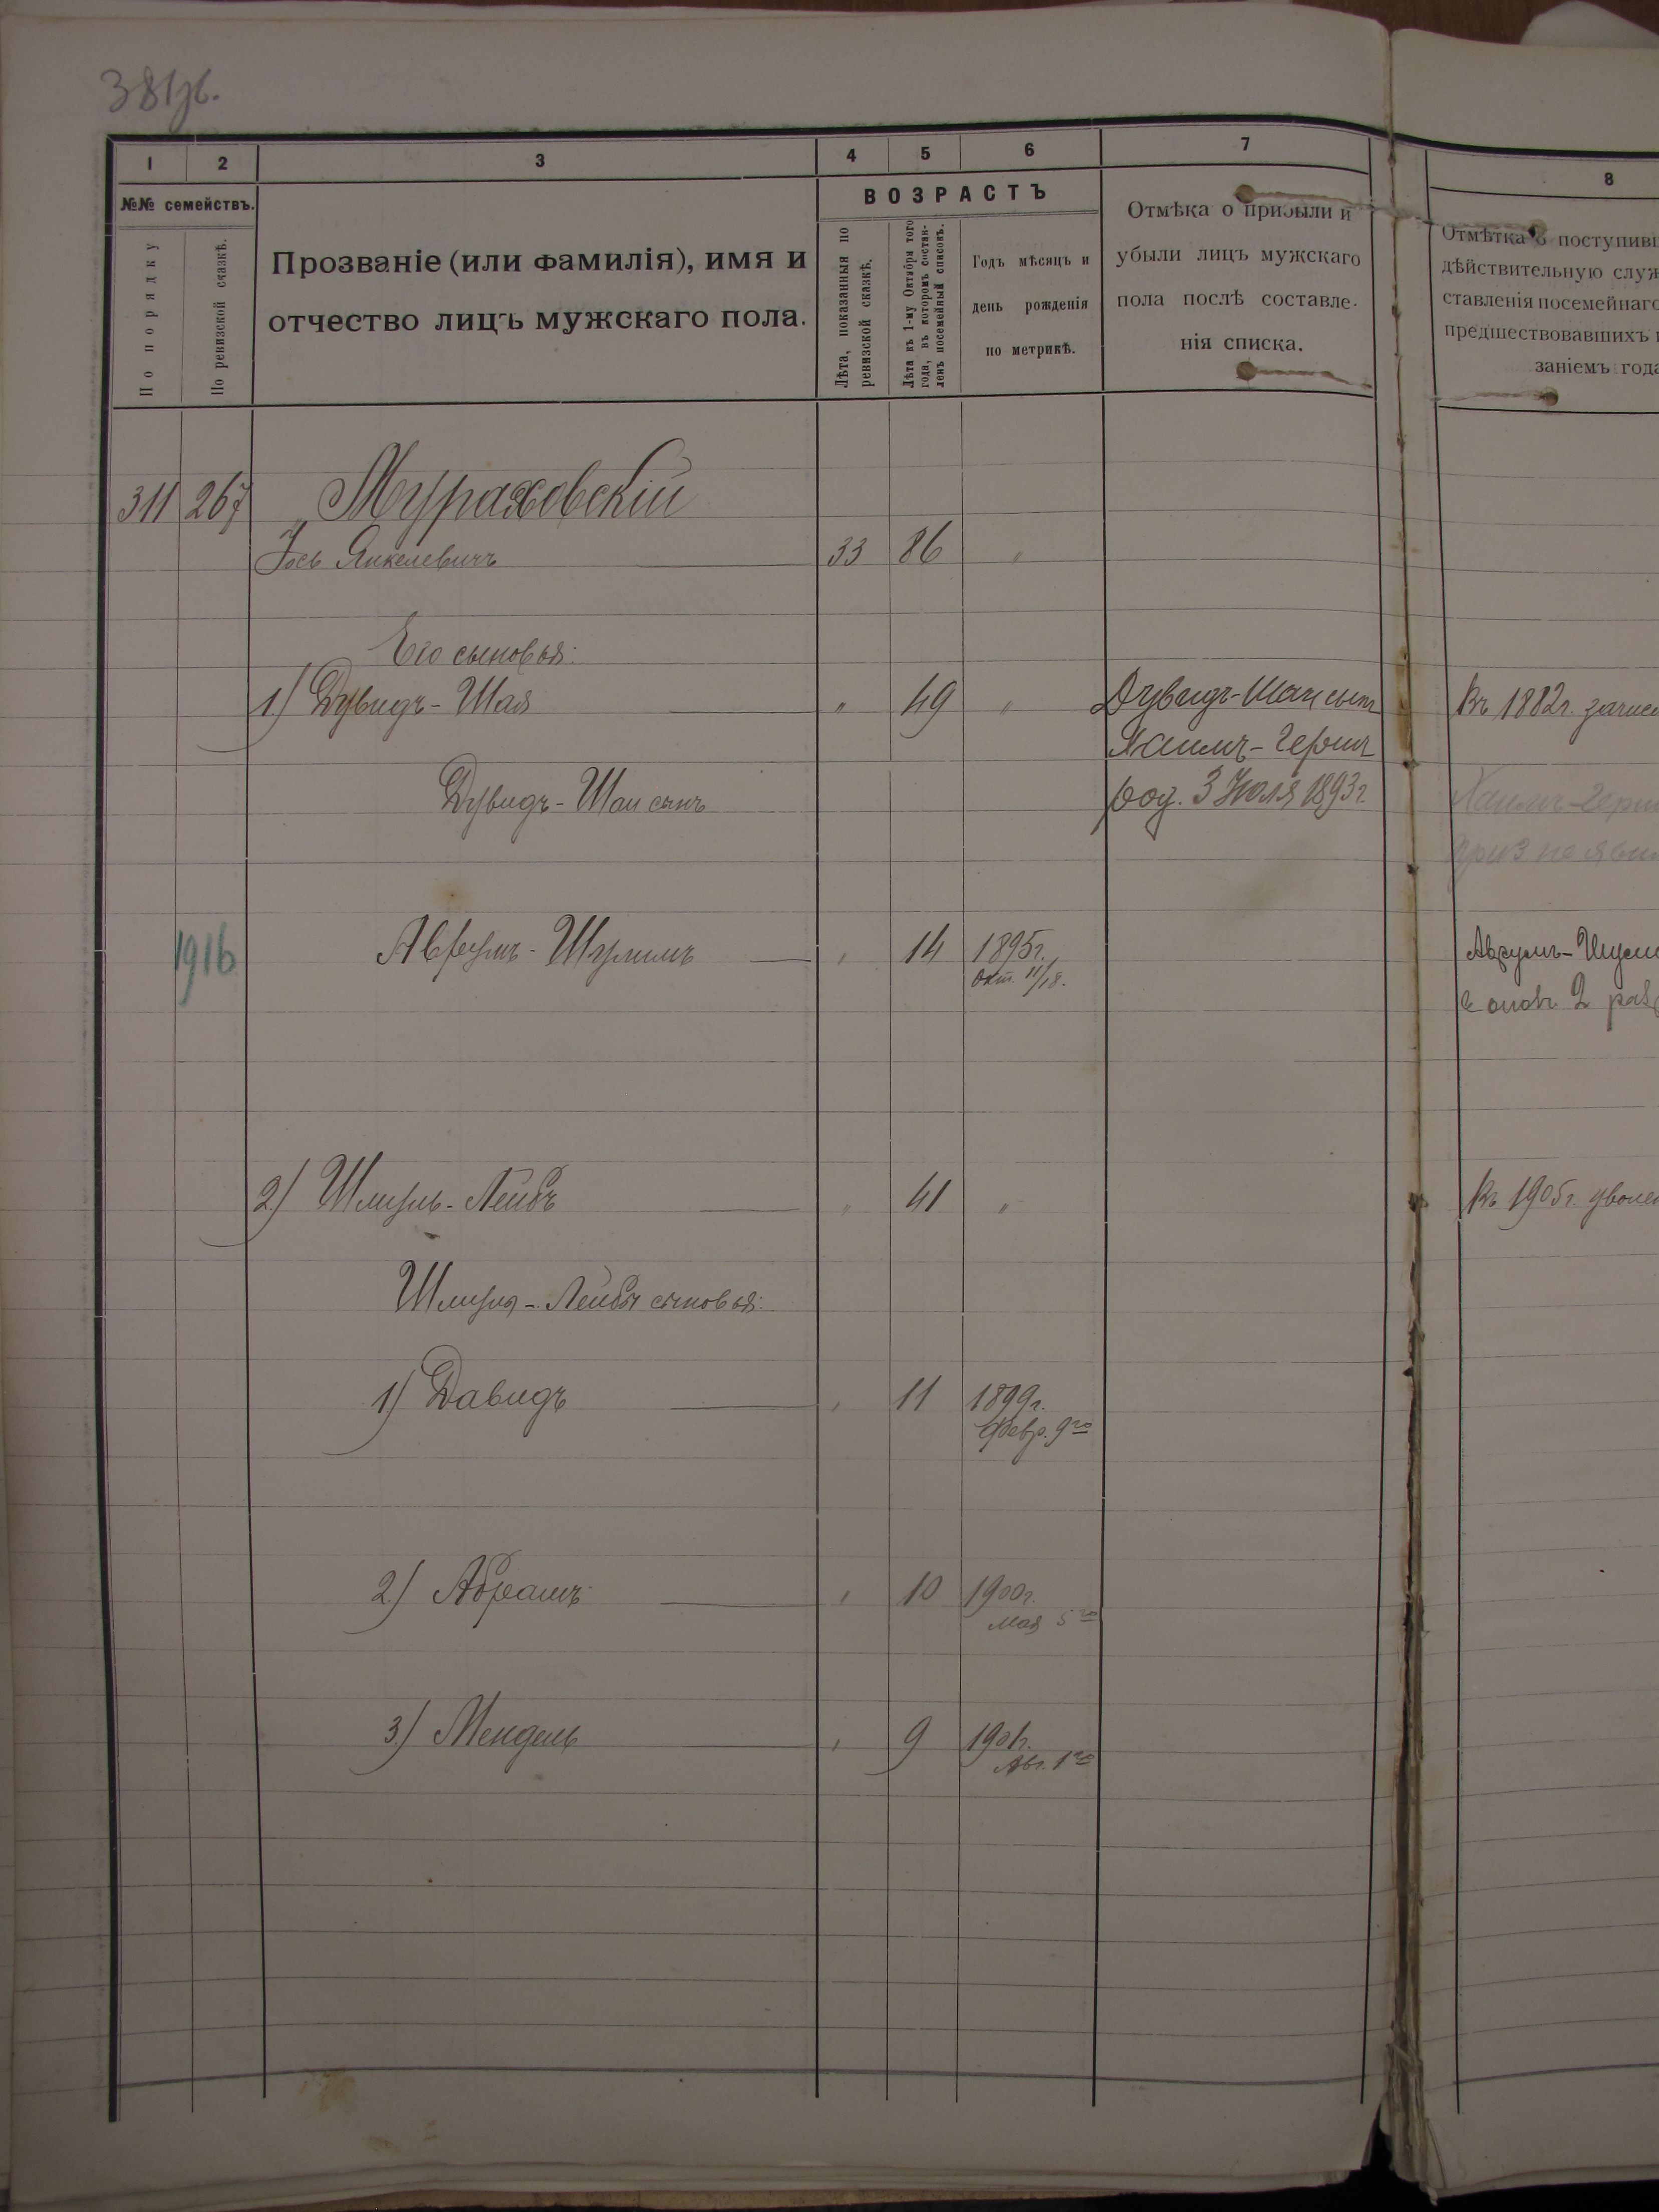 381об.
1 2 3 4 5 6 7 8
№№ семействъ.
По порядку
По ревизской сказкѣ.
Прозваніе (или фамилія), имя и
отчество лицъ мужскаго пола.
ВОЗРАСТЪ
Лѣта, показанныя по
ревизской сказкѣ.
Лѣта къ 1-му Октября того
года, въ которомъ состав-
ленъ посемейный списокъ.
Годъ мѣсяцъ и
день рожденія
по метрикѣ.
Отмѣка о прибыли и
убыли лицъ мужскаго
пола послѣ составле-
нія списка.
Отмѣтка о поступивш
дѣйствительную служ
ставленія посемейнаго
предшествовавшихъ
заніемъ года
311 267 Мураховскій
Іось Янкелевичъ 33 86 "
Его сыновья:
1) Дувидъ-Шая " 49 " Дувидъ-Шаи сынъ Въ 1882г. зачис
Хаимъ-Герш
Дувидъ-Шаи сынъ род. 3 Іюля 1893г. Хаимъ-Герш
приз не яви
1916 Аврумъ-Шулимъ " 14 1895г. Аврумъ-Шули
Окт. 11/18.
2 разр
2) Шмуль-Лейбъ " 41 " Въ 1905г. уволен
Шмуля-Лейбы сыновья:
1) Давидъ " 11 1899г.
Февр. 9го
2) Абрамъ " 10 1900г.
Мая 5го
3) Мендель " 9 1901г.
Авг. 1го